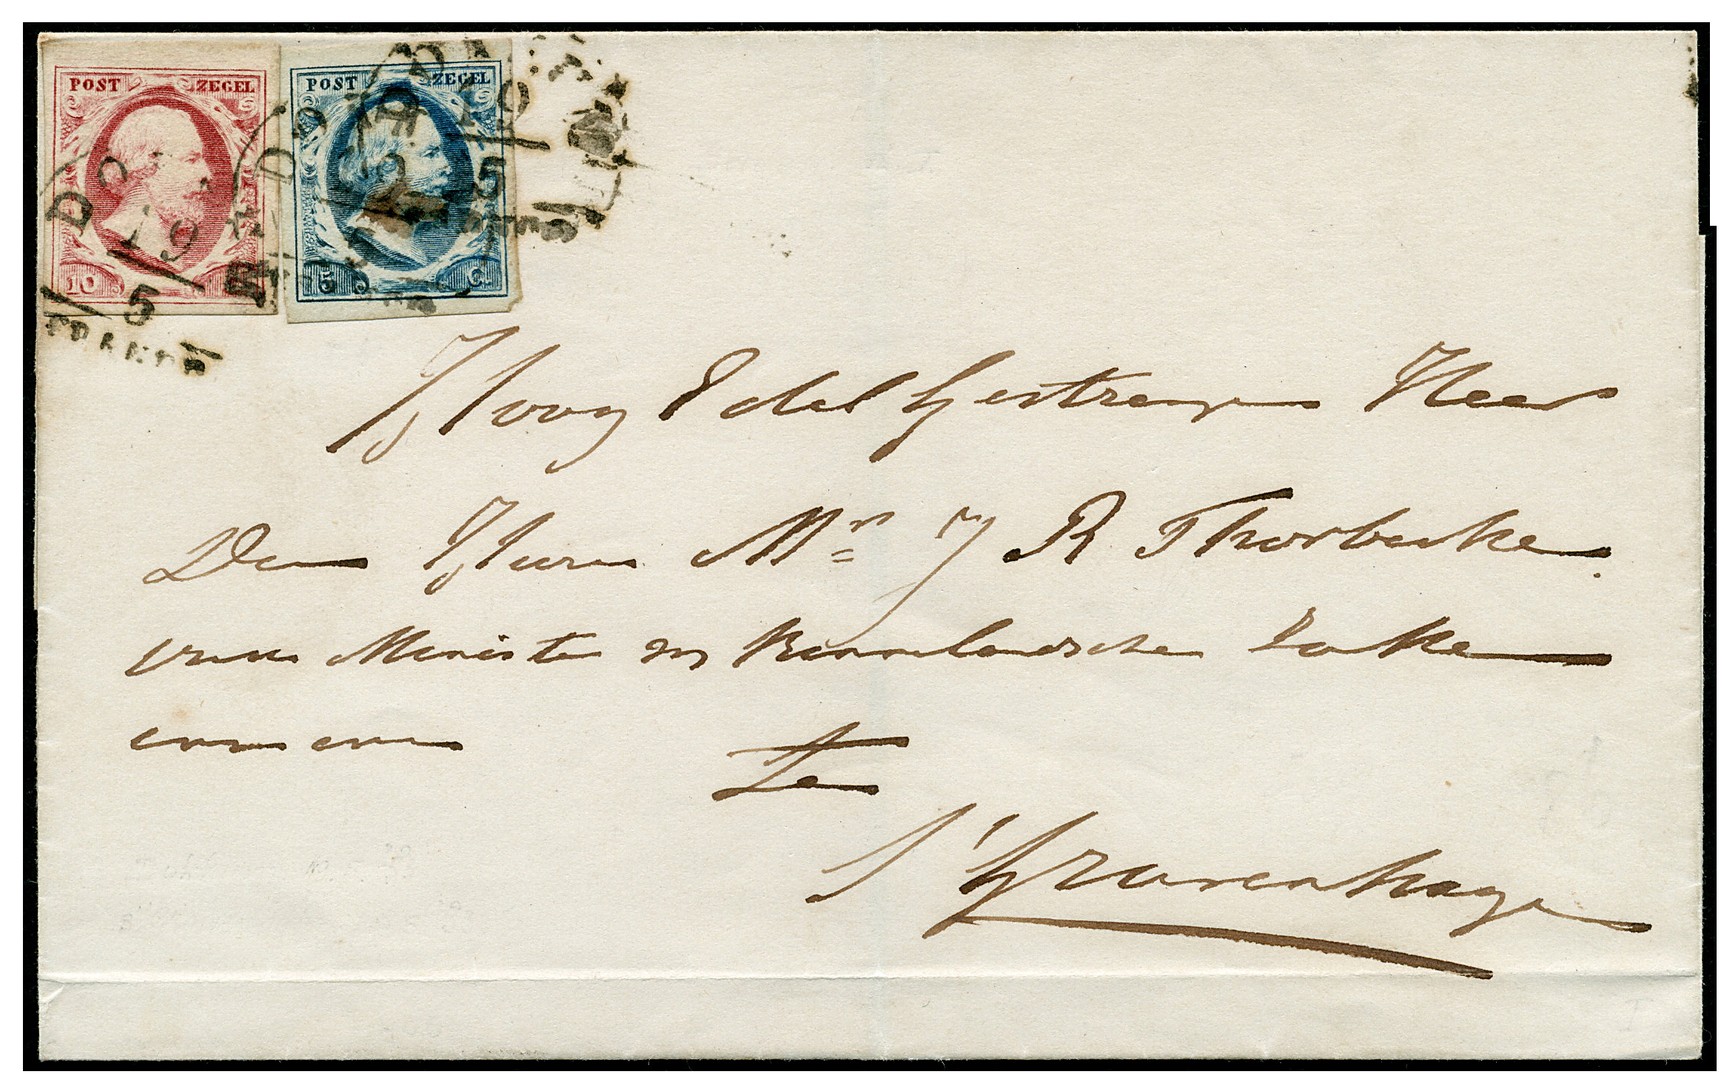 POST ZEGEL POST ZEGEL
10 5 C
19
5
19
5
FRANCO
Hoog Edel Gestrenge Heer
Den Heere Mr J R Thorbecke
van Ministerie Binnenlandsche Zaken
te
s'Gravenhage